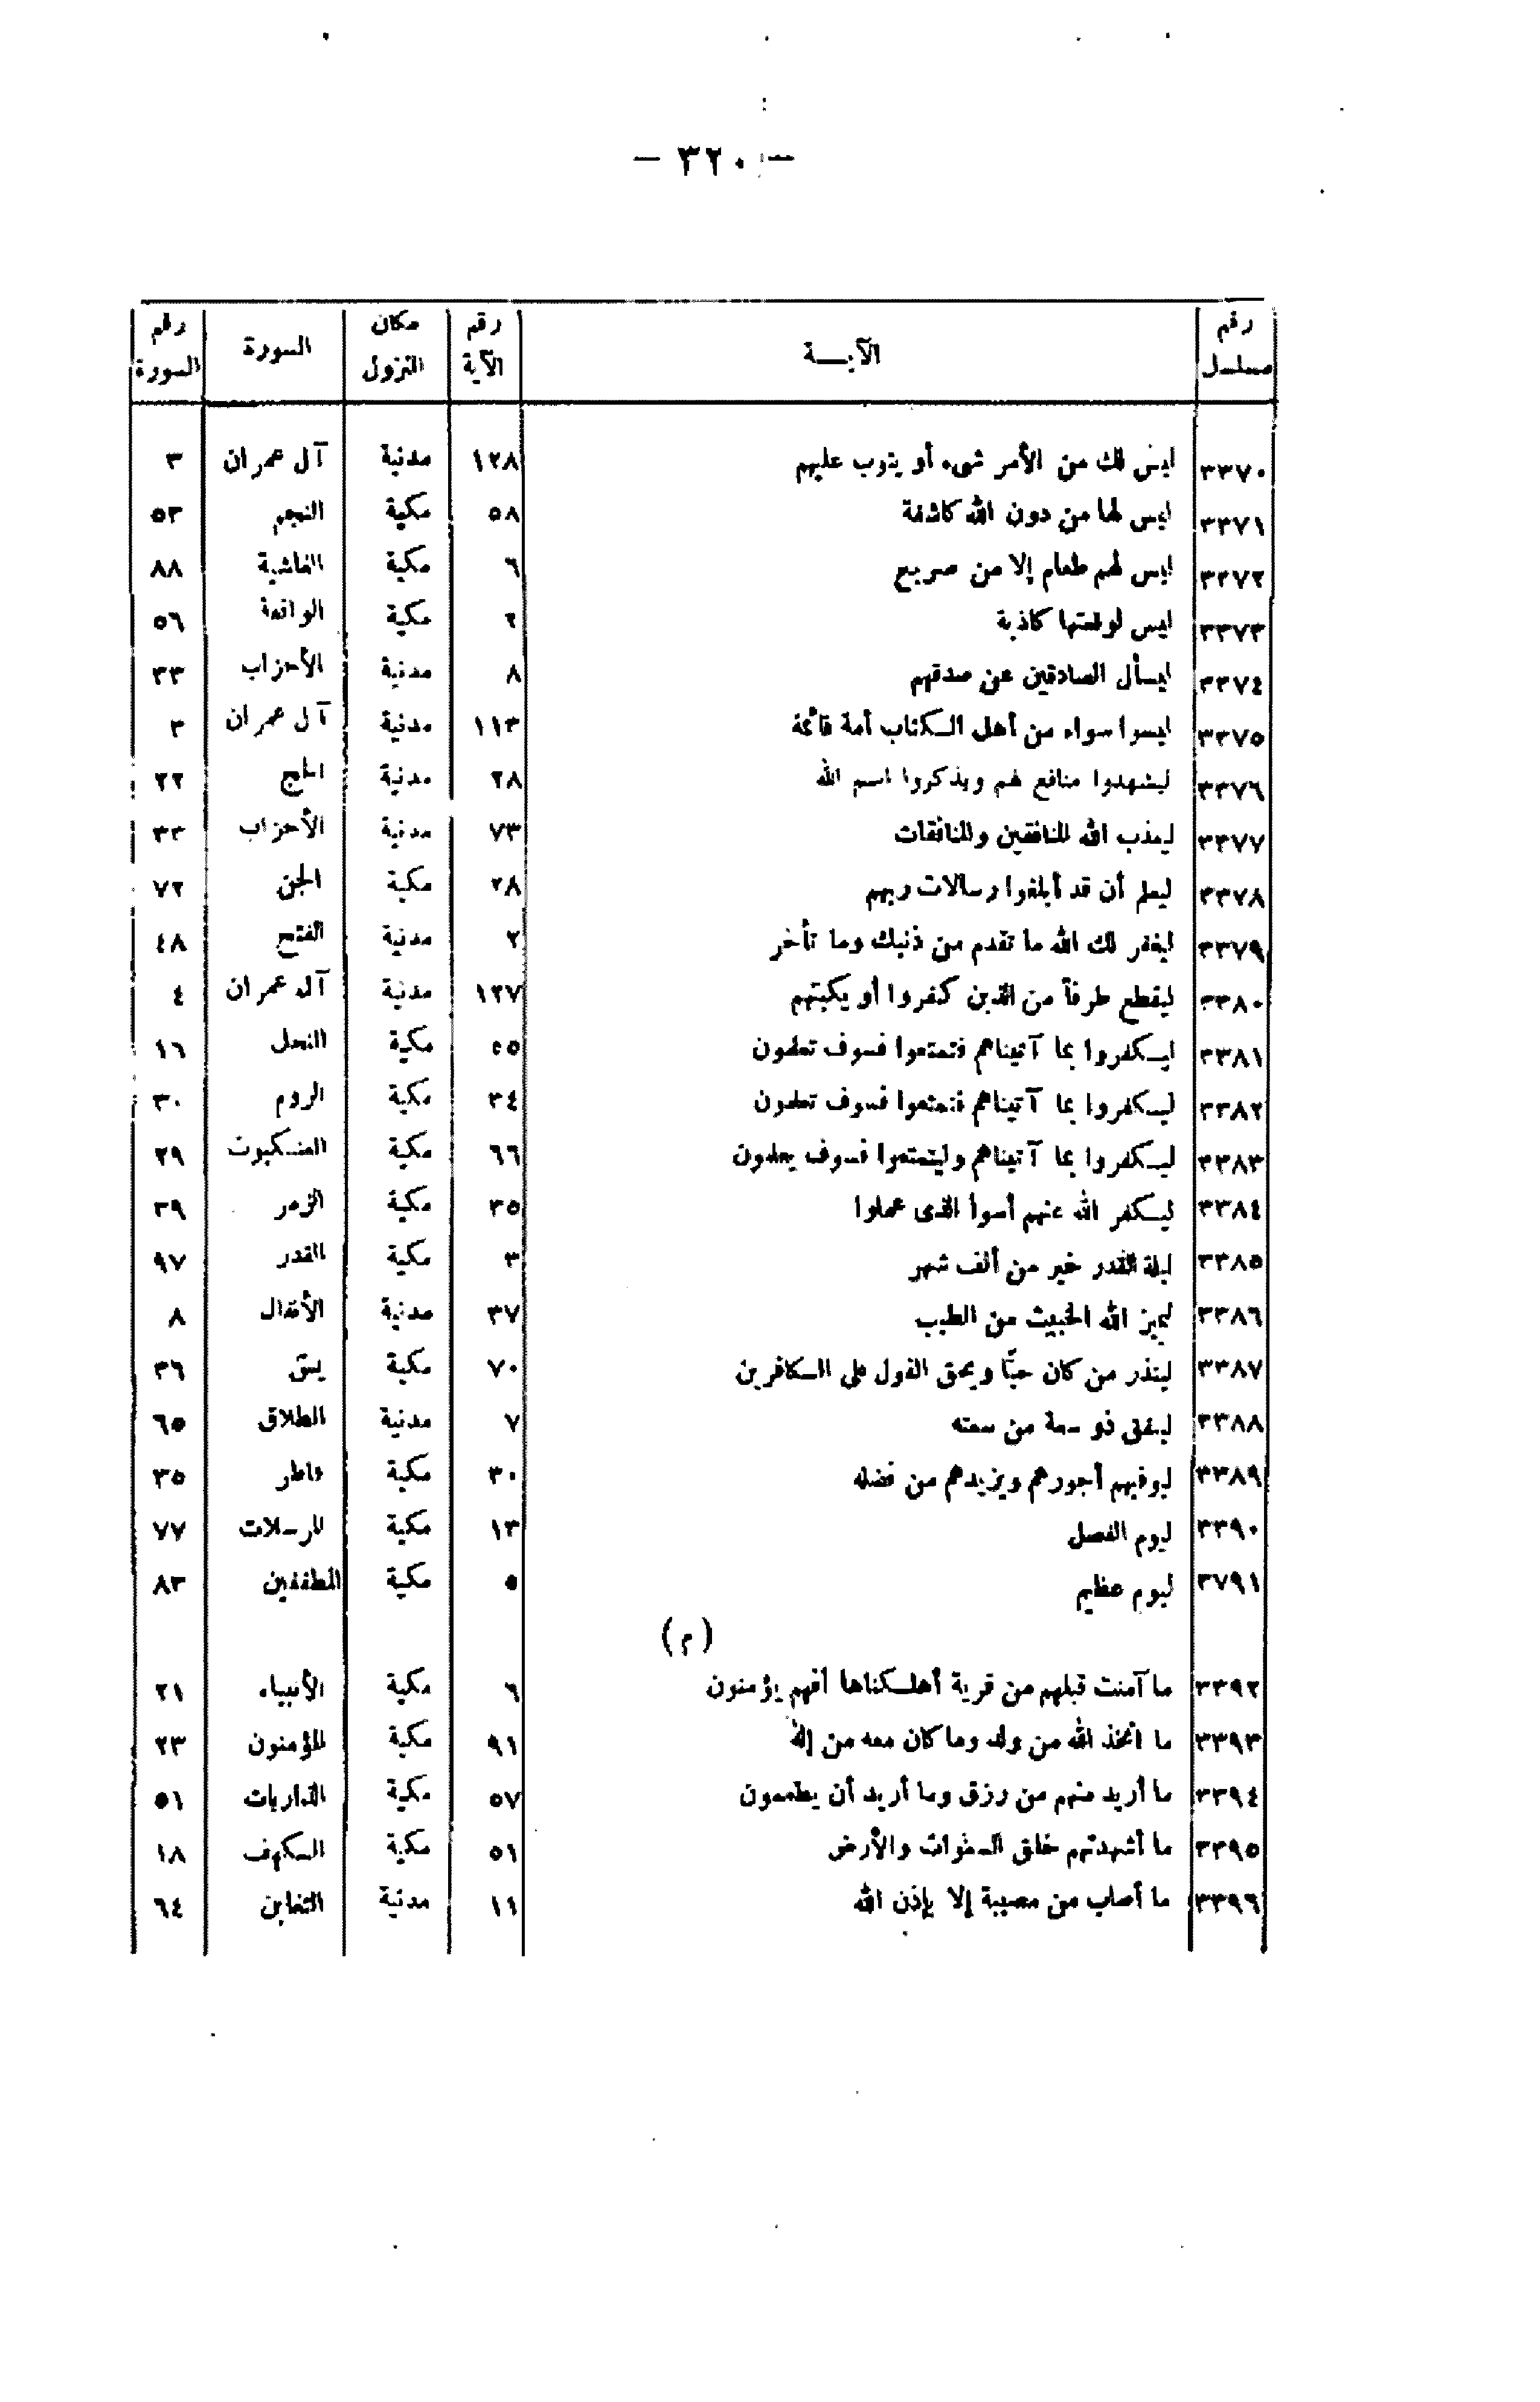 — ٣٢٠ —
رقم مسلسل | الآيــة | رقم الآية | مكان النزول | السورة | رقم السورة
٣٣٧٠ ليس لك من الأمر شىء أو يتوب عليهم ١٢٨ مدنية آل عمران ٣
٣٣٧١ ليس لها من دون الله كاشفة ٥٨ مكية النجم ٥٣
٣٣٧٢ ليس لهم طعام إلا من ضريع ٦ مكية الغاشية ٨٨
٣٣٧٣ ليس لوقعتها كاذبة ٢ مكية الواقعة ٥٦
٣٣٧٤ ليسأل الصادقين عن صدقهم ٨ مدنية الأحزاب ٣٣
٣٣٧٥ ليسوا سواء من أهل الكتاب أمة قائمة ١١٣ مدنية آل عمران ٣
٣٣٧٦ ليشهدوا منافع لهم ويذكروا اسم الله ٢٨ مدنية الحج ٢٢
٣٣٧٧ ليعذب الله المنافقين والمنافقات ٧٣ مدنية الأحزاب ٣٣
٣٣٧٨ ليعلم أن قد أبلغوا رسالات ربهم ٢٨ مكية الجن ٧٢
٣٣٧٩ ليغفر لك الله ما تقدم من ذنبك وما تأخر ٢ مدنية الفتح ٤٨
٣٣٨٠ ليقطع طرفاً من الذين كفروا أو يكبتهم ١٢٧ مدنية آل عمران ٤
٣٣٨١ ليكفروا بما آتيناهم فتمتعوا فسوف تعلمون ٥٥ مكية النحل ١٦
٣٣٨٢ ليكفروا بما آتيناهم فتمتعوا فسوف تعلمون ٣٤ مكية الروم ٣٠
٣٣٨٣ ليكفروا بما آتيناهم وليتمتعوا فسوف يعلمون ٦٦ مكية العنكبوت ٢٩
٣٣٨٤ ليكفر الله عنهم أسوأ الذى عملوا ٣٥ مكية الزمر ٣٩
٣٣٨٥ ليلة القدر خير من ألف شهر ٣ مكية القدر ٩٧
٣٣٨٦ ليميز الله الخبيث من الطيب ٣٧ مدنية الأنفال ٨
٣٣٨٧ لينذر من كان حيًّا ويحق القول على الكافرين ٧٠ مكية يس ٣٦
٣٣٨٨ لينفق ذو سعة من سعته ٧ مدنية الطلاق ٦٥
٣٣٨٩ ليوفيهم أجورهم ويزيدهم من فضله ٣٠ مكية فاطر ٣٥
٣٣٩٠ ليوم الفصل ١٣ مكية المرسلات ٧٧
٣٧٩١ ليوم عظيم ٥ مكية المطففين ٨٣
(م)
٣٣٩٢ ما آمنت قبلهم من قرية أهلكناها أفهم يؤمنون ٦ مكية الأنبياء ٢١
٣٣٩٣ ما اتخذ الله من ولد وما كان معه من إله ٩١ مكية المؤمنون ٢٣
٣٣٩٤ ما أريد منهم من رزق وما أريد أن يطعمون ٥٧ مكية الذاريات ٥١
٣٣٩٥ ما أشهدتهم خلق السموات والأرض ٥١ مكية الكهف ١٨
٣٣٩٦ ما أصاب من مصيبة إلا بإذن الله ١١ مدنية التغابن ٦٤